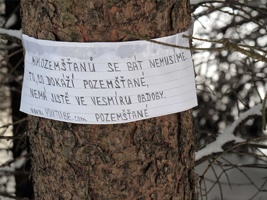 MIMOZEMŠŤANŮ SE BÁT NEMUSÍME
TO, CO DOKÁŽÍ POZEMŠŤANÉ,
NEMÁ JISTĚ VE VESMÍRU OBDOBY.
WWW.YOUTUBE.com POZEMŠŤANÉ